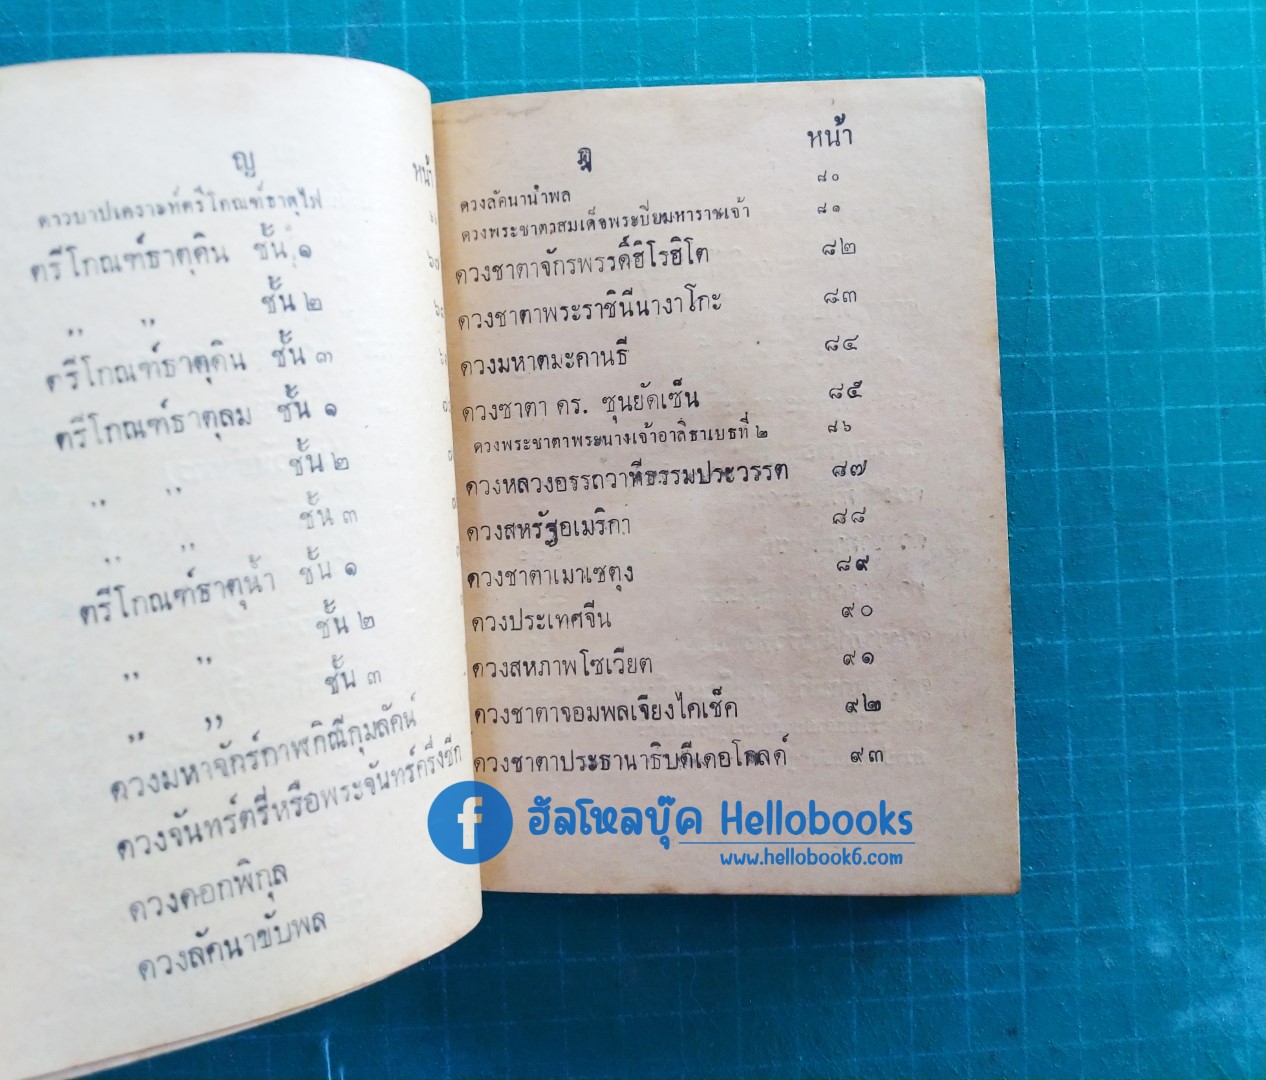 ญ
หน้า
ดาวบาปเคราะห์ตรีโกณฑ์ธาตุไฟ
ตรีโกณฑ์ธาตุดิน ชั้น ๑
" " ชั้น ๒
ตรีโกณฑ์ธาตุดิน ชั้น ๓
ตรีโกณฑ์ธาตุลม ชั้น ๑
" " ชั้น ๒
" " ชั้น ๓
ตรีโกณฑ์ธาตุน้ำ ชั้น ๑
" " ชั้น ๒
" " ชั้น ๓
ดวงมหาจักร์กาฬกิณีกุมลัคน์
ดวงจันทร์ตรี่หรือพระจันทร์ครึ่งซีก
ดวงดอกพิกุล
ดวงลัคนาขับพล
ฎ
หน้า
ดวงลัคนานำพล ๘๐
ดวงพระชาตาสมเด็จพระปิยมหาราชเจ้า ๘๑
ดวงชาตาจักรพรรดิ์ฮิโรฮิโต ๘๒
ดวงชาตาพระราชินีนางาโกะ ๘๓
ดวงมหาตมะคานธี ๘๔
ดวงชาตา ดร. ซุนยัดเซ็น ๘๕
ดวงพระชาตาพระนางเจ้าอาลิธาเบธที่ ๒ ๘๖
ดวงหลวงอรรถวาทีธรรมประวรรต ๘๗
ดวงสหรัฐอเมริกา ๘๘
ดวงชาตาเมาเซตุง ๘๙
ดวงประเทศจีน ๙๐
ดวงสหภาพโซเวียต ๙๑
ดวงชาตาจอมพลเจียงไคเช็ค ๙๒
ดวงชาตาประธานาธิบดีเดอโกลด์ ๙๓
f ฮัลโหลบุ๊ค Hellobooks
www.hellobook6.com